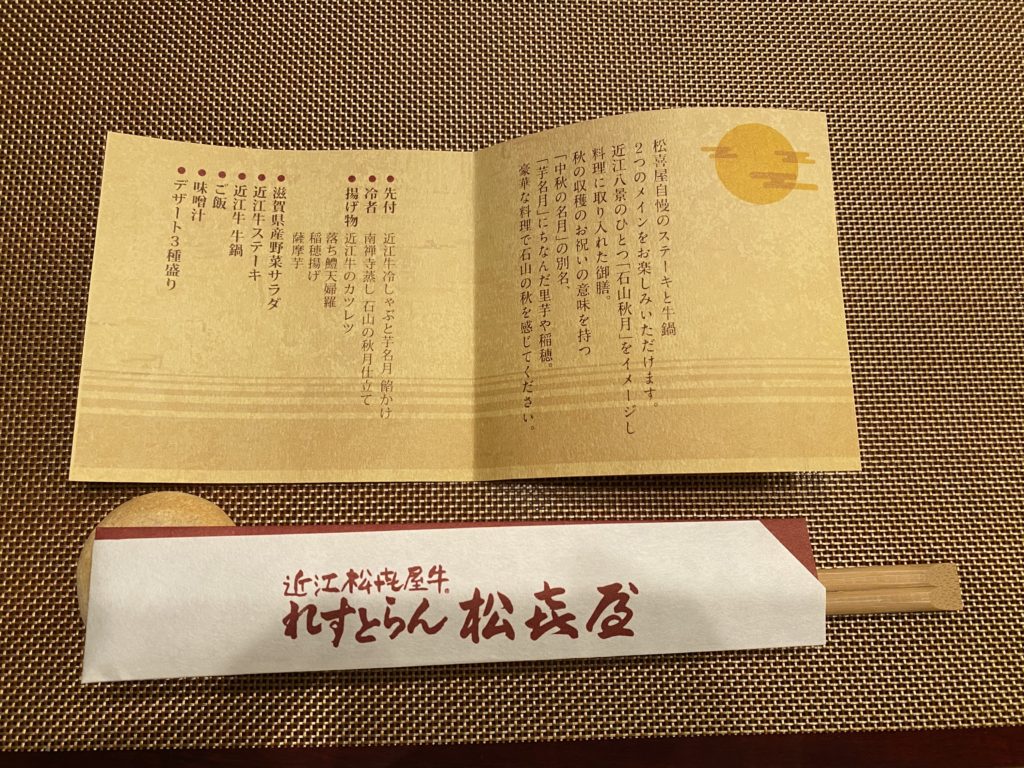 松喜屋自慢のステーキと牛鍋
2つのメインをお楽しみいただけます。
近江八景のひとつ「石山秋月」をイメージし
料理に取り入れた御膳。
秋の収穫のお祝いの意味を持つ
「中秋の名月」の別名、
「芋名月」にちなんだ里芋や稲穂。
豪華な料理で石山の秋を感じてください。
●先付 近江牛冷しゃぶと芋名月 餡かけ
●冷者 南禅寺蒸し 石山の秋月仕立て
●揚げ物 近江牛のカツレツ
落ち鱧天婦羅
稲穂揚げ
薩摩芋
●滋賀県産野菜サラダ
●近江牛ステーキ
●近江牛 牛鍋
●ご飯
●味噌汁
●デザート3種盛り
近江松喜屋牛®
れすとらん 松㐂屋